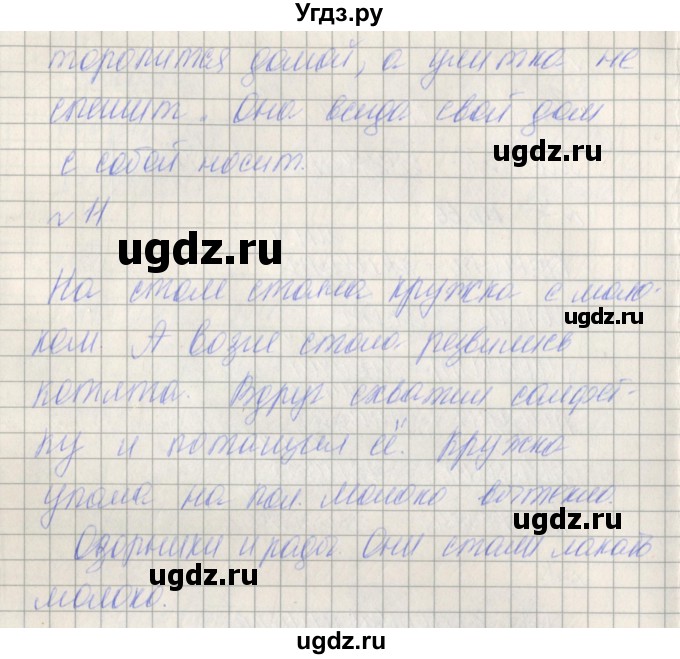 Угдз.ру
торопится домой, а улитка не
спешит. Она всегда свой дом
ugdz.ru
с собой носит.
№ 11
ugdz.ru
На столе стояла кружка с моло-
ugdz.ru
ком. А возле стола резвились
котята. Вдруг схватил салфет-
ку и потащил её. Кружка
упала на пол. Молоко вытекло.
ugdz.ru
Озорники и рады. Они стали лакать
ugdz.ru
молоко.
ugdz.ru